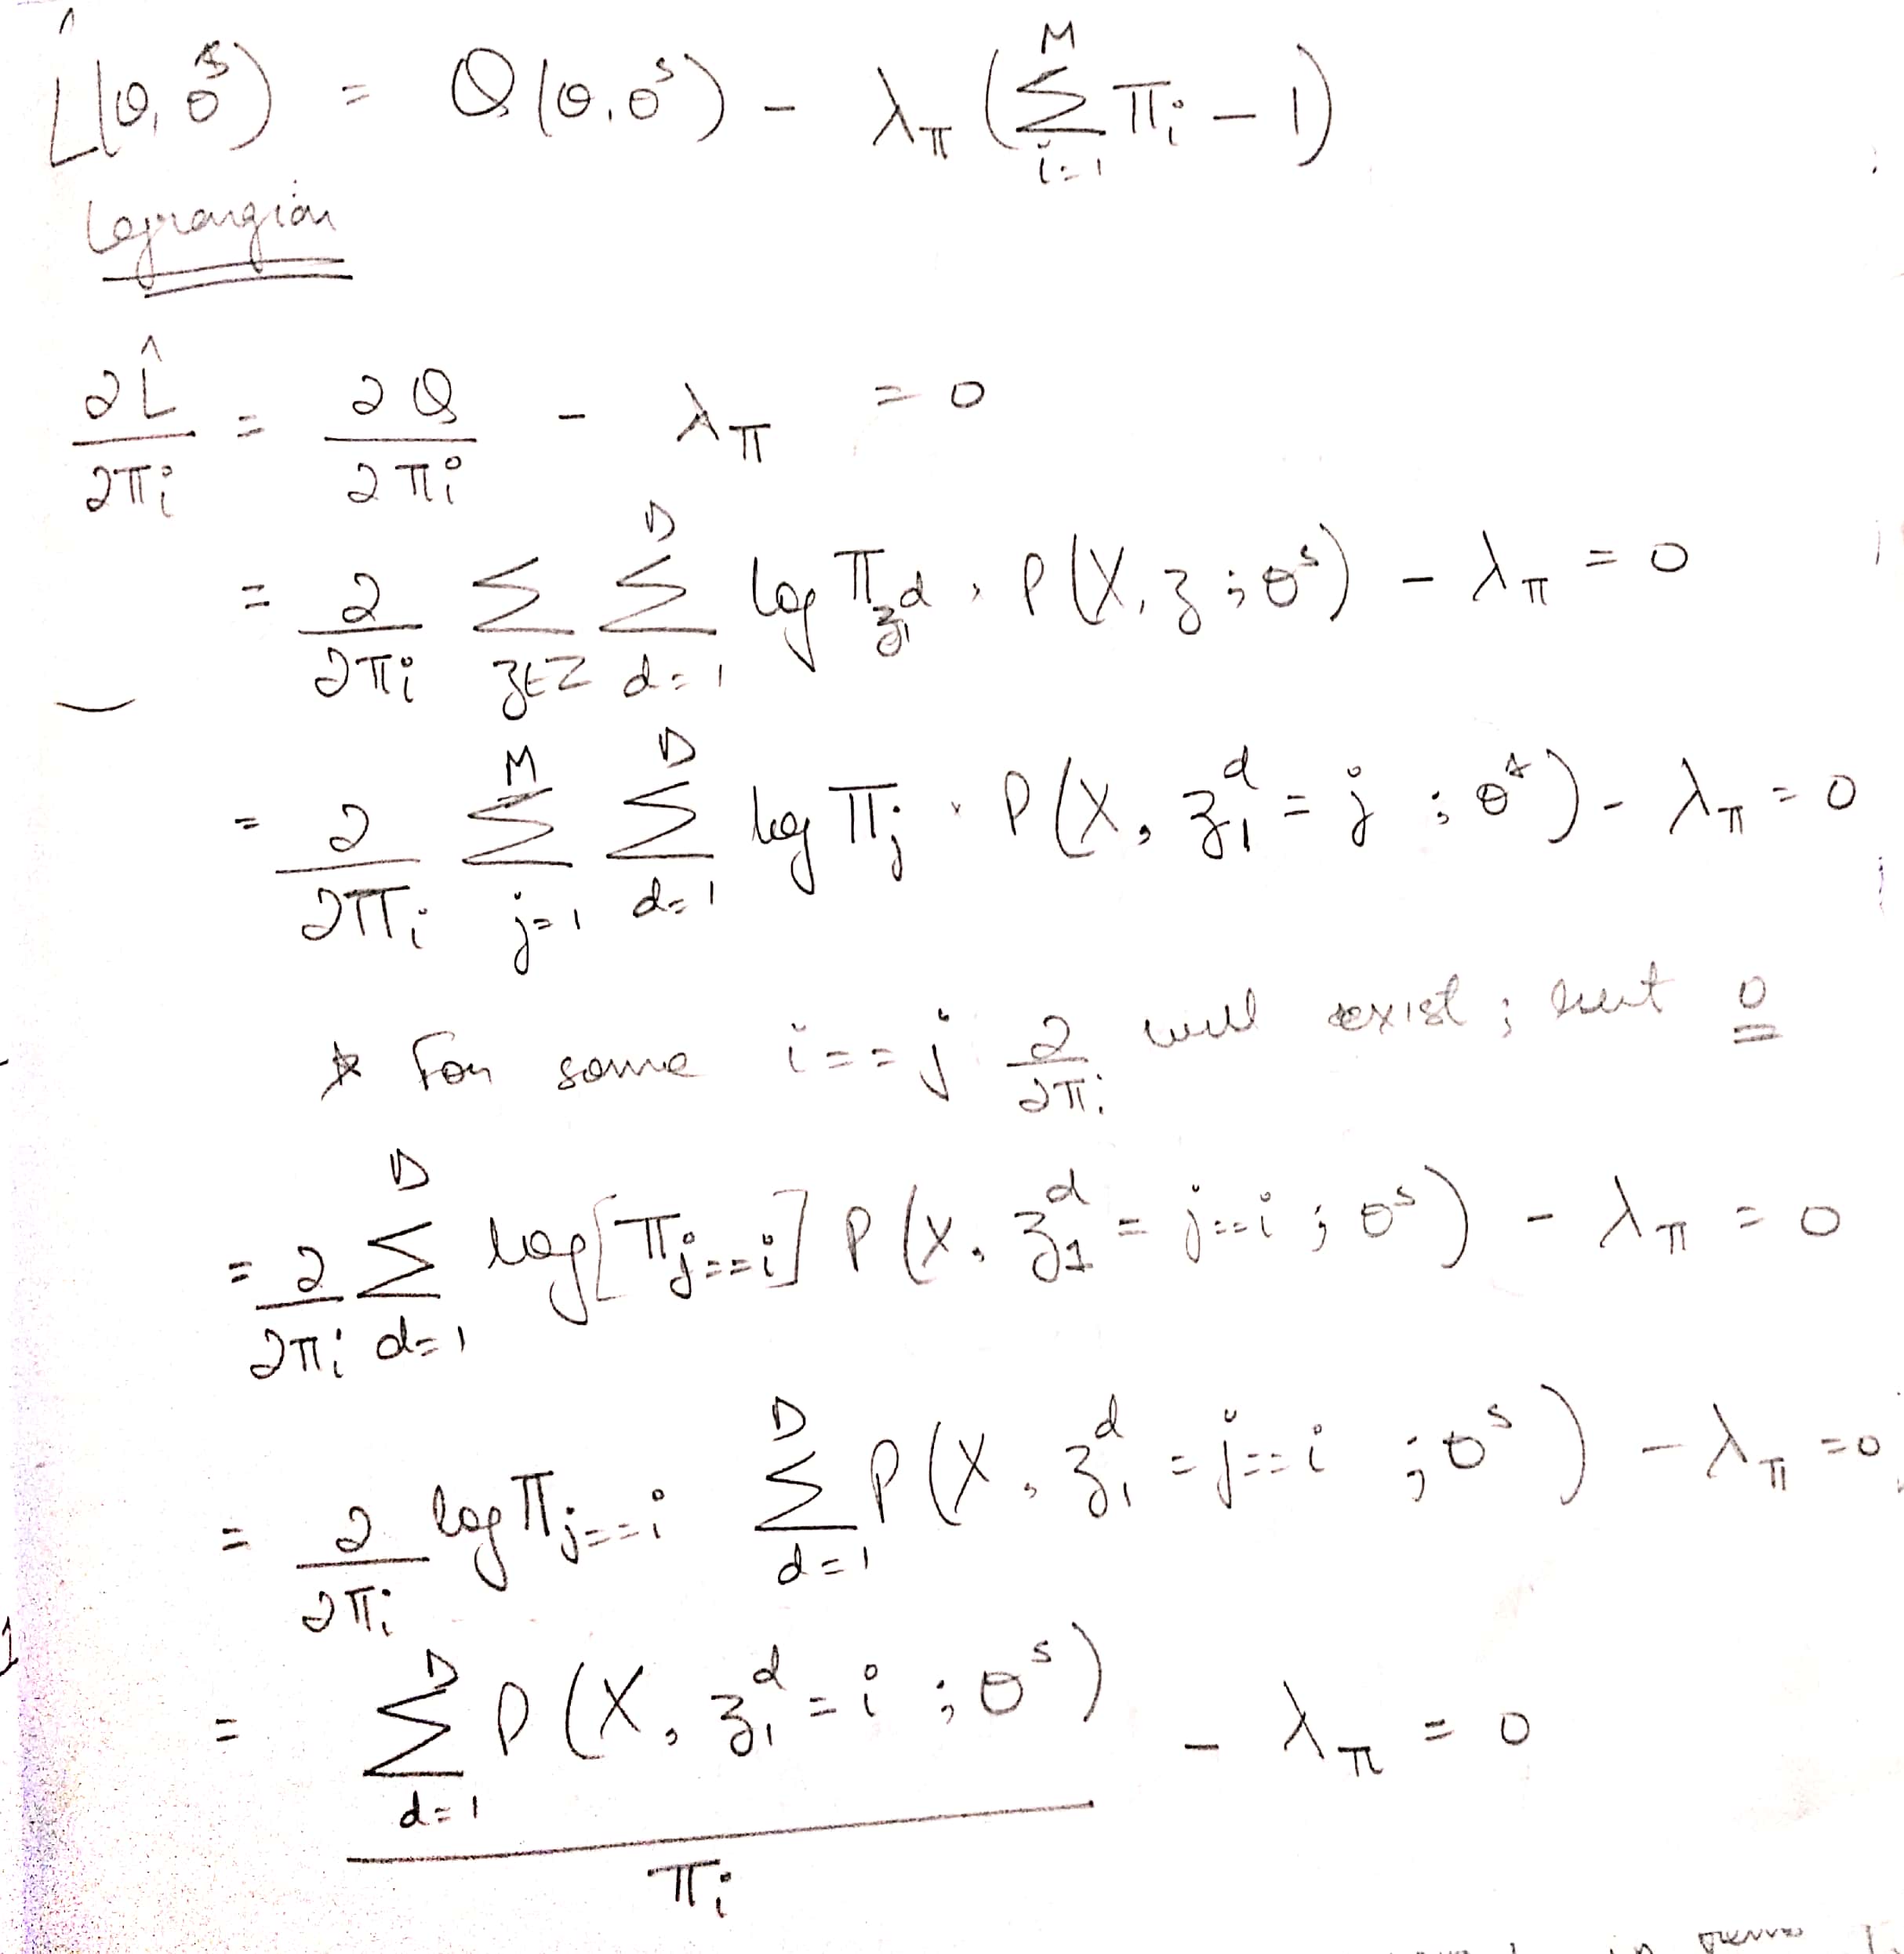 L̂(θ, θˢ) = Q(θ, θˢ) − λ_π (∑_{i=1}^{M} π_i − 1)
Lagrangian
∂L̂/∂π_i = ∂Q/∂π_i − λ_π = 0
= ∂/∂π_i ∑_{z∈Z} ∑_{d=1}^{D} log π_{z_1^d} · P(X, z ; θˢ) − λ_π = 0
= ∂/∂π_i ∑_{j=1}^{M} ∑_{d=1}^{D} log π_j · P(X, z_1^d = j ; θˢ) − λ_π = 0
* For some i == j ∂/∂π_i will exist ; rest 0
= ∂/∂π_i ∑_{d=1}^{D} log[π_{j==i}] P(X, z_1^d = j==i ; θˢ) − λ_π = 0
= ∂/∂π_i log π_{j==i} ∑_{d=1}^{D} P(X, z_1^d = j==i ; θˢ) − λ_π = 0
= ∑_{d=1}^{D} P(X, z_1^d = i ; θˢ) / π_i − λ_π = 0